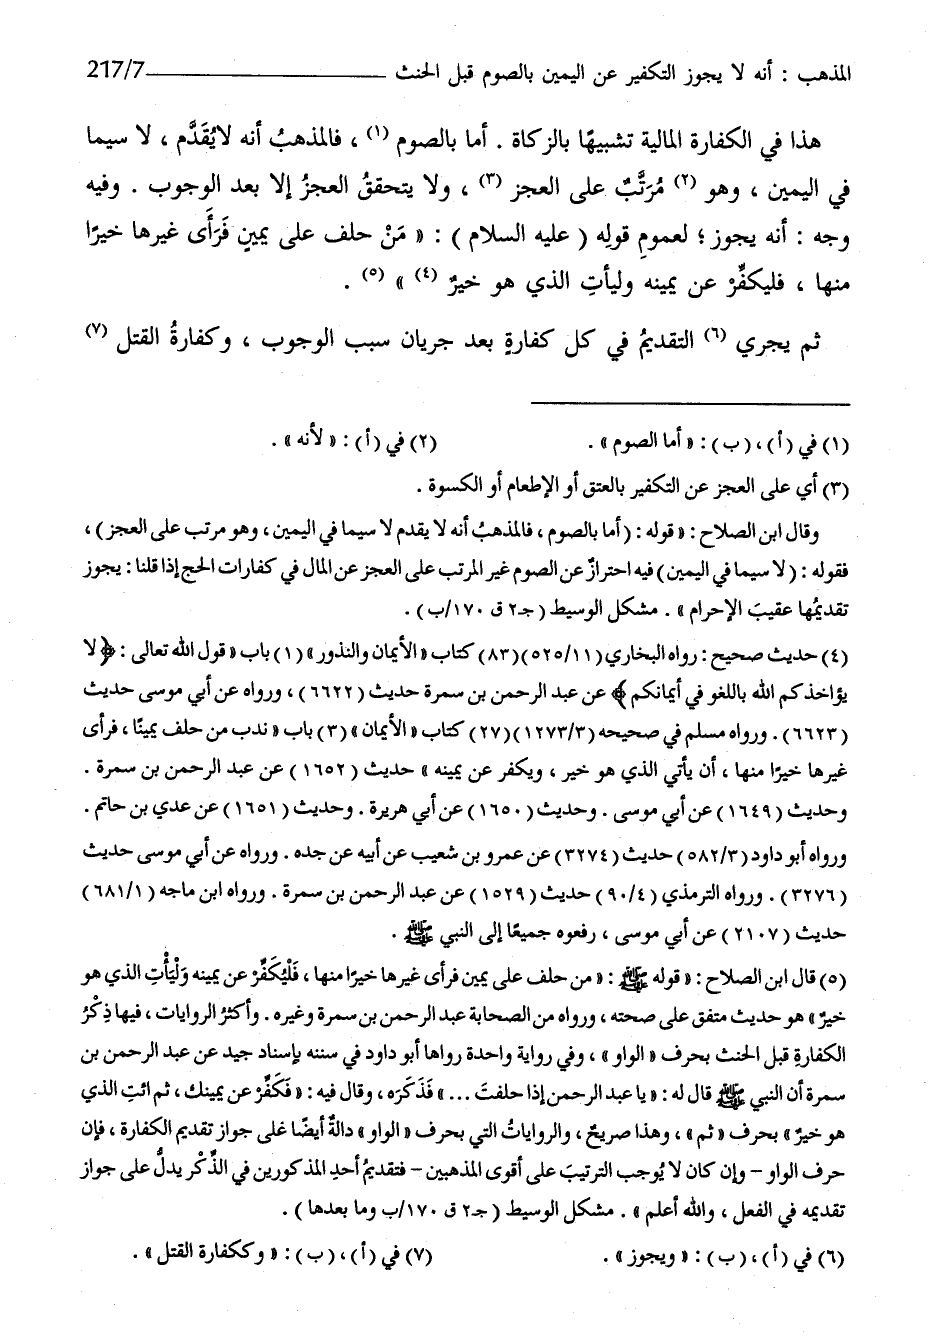 المذهب : أنه لا يجوز التكفير عن اليمين بالصوم قبل الحنث 217/7
هذا في الكفارة المالية تشبيهًا بالزكاة . أما بالصوم (١) ، فالمذهبُ أنه لايُقَدَّم ، لا سيما
في اليمين ، وهو (٢) مُرَتَّبٌ على العجز (٣) ، ولا يتحققُ العجزُ إلا بعد الوجوب . وفيه
وجه : أنه يجوز ؛ لعمومِ قولِه ( عليه السلام ) : « مَنْ حلف على يمينٍ فَرَأَى غيرها خيرًا
منها ، فليكفِّرْ عن يمينه وليأتِ الذي هو خيرٌ (٤) » (٥) .
ثم يجري (٦) التقديمُ في كل كفارةٍ بعد جريان سبب الوجوب ، وكفارةُ القتل (٧)
(١) في (أ) ، (ب) : « أما الصوم » . (٢) في (أ) : « لأنه » .
(٣) أي على العجز عن التكفير بالعتق أو الإطعام أو الكسوة .
وقال ابن الصلاح : « قوله : ( أما بالصوم ، فالمذهبُ أنه لا يقدم لا سيما في اليمين ، وهو مرتب على العجز ) ،
فقوله : ( لا سيما في اليمين ) فيه احترازٌ عن الصوم غير المرتب على العجز عن المال في كفارات الحج إذا قلنا : يجوز
تقديمُها عقيبَ الإحرام » . مشكل الوسيط ( جـ٢ ق ١٧٠/ب ) .
(٤) حديث صحيح : رواه البخاري ( ٥٢٥/١١ ) ( ٨٣ ) كتاب « الأيمان والنذور » (١) باب « قول الله تعالى : ﴿ لا
يؤاخذكم الله باللغو في أيمانكم ﴾ عن عبد الرحمن بن سمرة حديث ( ٦٦٢٢ ) ، ورواه عن أبي موسى حديث
( ٦٦٢٣ ) . ورواه مسلم في صحيحه ( ١٢٧٣/٣ ) ( ٢٧ ) كتاب « الأيمان » (٣) باب « ندب من حلف يمينًا ، فرأى
غيرها خيرًا منها ، أن يأتي الذي هو خير ، ويكفر عن يمينه » حديث ( ١٦٥٢ ) عن عبد الرحمن بن سمرة .
وحديث ( ١٦٤٩ ) عن أبي موسى . وحديث ( ١٦٥٠ ) عن أبي هريرة . وحديث ( ١٦٥١ ) عن عدي بن حاتم .
ورواه أبو داود ( ٥٨٢/٣ ) حديث ( ٣٢٧٤ ) عن عمرو بن شعيب عن أبيه عن جده . ورواه عن أبي موسى حديث
( ٣٢٧٦ ) . ورواه الترمذي ( ٩٠/٤ ) حديث ( ١٥٢٩ ) عن عبد الرحمن بن سمرة . ورواه ابن ماجه ( ٦٨١/١ )
حديث ( ٢١٠٧ ) عن أبي موسى ، رفعوه جميعًا إلى النبي ﷺ .
(٥) قال ابن الصلاح : « قوله ﷺ : « من حلف على يمين فرأى غيرها خيرًا منها ، فَلْيُكَفِّرْ عن يمينه وَلْيَأْتِ الذي هو
خيرٌ » هو حديث متفق على صحته ، ورواه من الصحابة عبد الرحمن بن سمرة وغيره . وأكثرُ الروايات ، فيها ذِكْرُ
الكفارةِ قبل الحنث بحرف « الواو » ، وفي رواية واحدة رواها أبو داود في سننه بإسناد جيد عن عبد الرحمن بن
سمرة أن النبي ﷺ قال له : « يا عبد الرحمن إذا حلفتَ ... » فَذَكَرَه ، وقال فيه : « فَكَفِّرْ عن يمينك ، ثم ائتِ الذي
هو خيرٌ » بحرف « ثم » ، وهذا صريحٌ ، والرواياتُ التي بحرف « الواو » دالةٌ أيضًا غلى جواز تقديم الكفارة ، فإن
حرف الواو – وإن كان لا يُوجب الترتيبَ على أقوى المذهبين – فتقديمُ أحدِ المذكورين في الذِّكْر يدلُّ على جواز
تقديمه في الفعل ، والله أعلم » . مشكل الوسيط ( جـ٢ ق ١٧٠/ب وما بعدها ) .
(٦) في (أ) ، (ب) : « ويجوز » . (٧) في (أ) ، (ب) : « وككفارة القتل » .